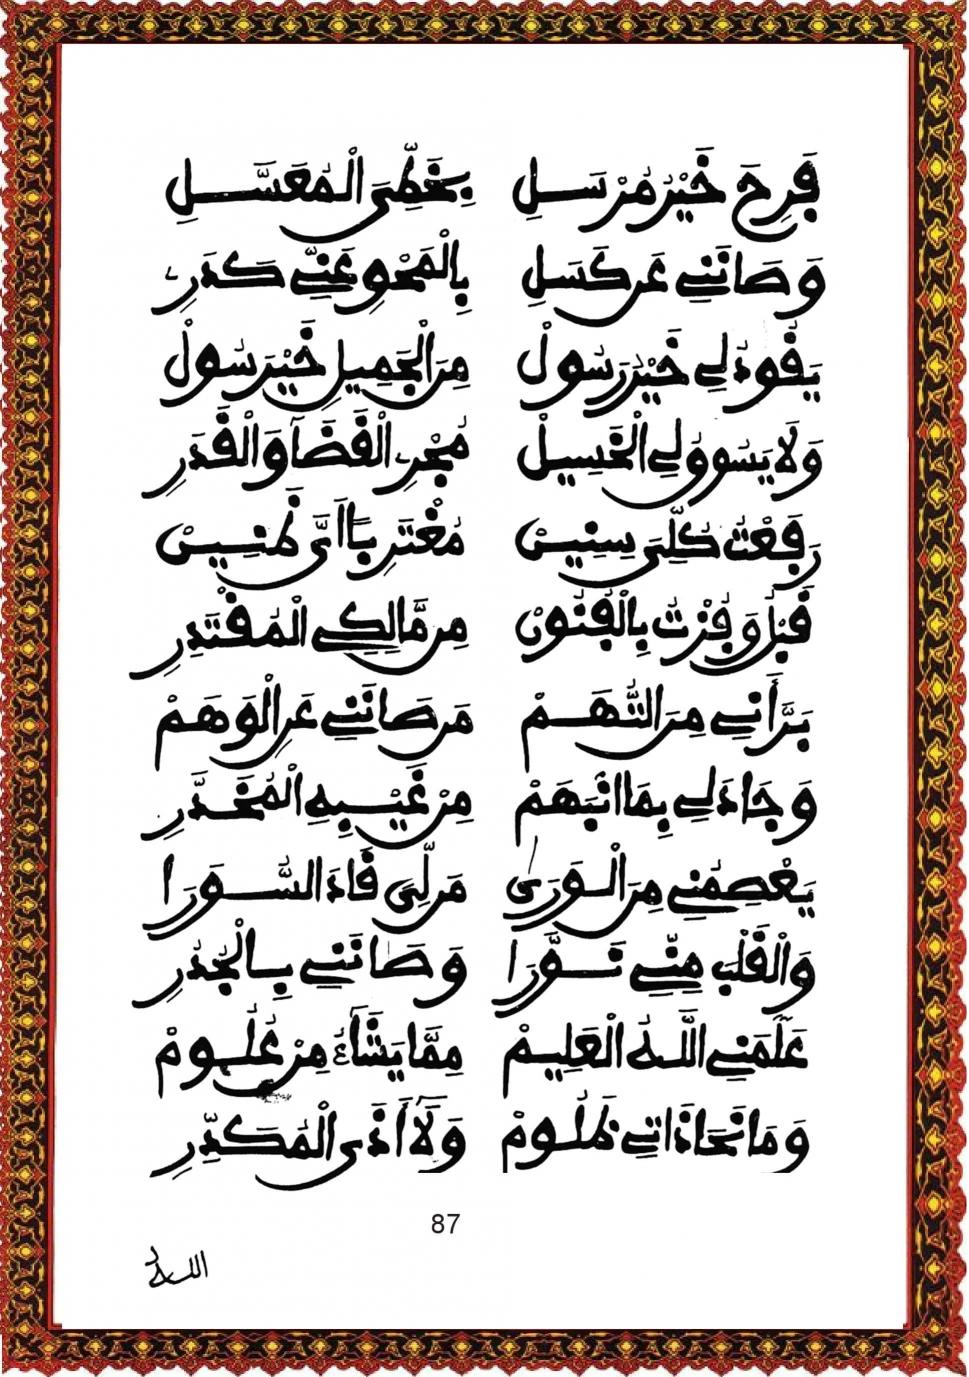 فَرِحَ خَيْرُ مُرْسَلِ بِخَطِّىَ الْمُعَسَّلِ
وَصَانَنِے عَن كَسَلِ بِالْمَحْوِ عَنِّے كَدَرِے
يَقُودُ لِے خَيْرُ رَسُولْ مِنَ الْجَمِيلِ خَيْرَ سُولْ
وَلَا يَسُووُ لِے الْخَسِيلْ مُجْرِے الْقَضَآ وَالْقَدَرِ
رَفَعْتُ كُلِّىَ سِنِينْ مُغْتَرِباً أَىَّ ظَنِينْ
قَبْلُ وَفُزْتُ بِالْفُنُونْ مِن مَّالِكِے الْمُقْتَدِرِ
بَرَّأَنِے مِنَ التُّهَمْ مَن صَانَنِے عَنِ الْوَهَمْ
وَجَادَ لِے بِمَا انْبَهَمْ مِنْ غَيْبِهِ الْمُخَدَّرِ
يَعْصِمُنِے مِنَ الْوَرَىٰ مَن لِّىَ قَادَ السُّوَرَا
وَالْقَلْبَ مِنِّے نَوَّرَا وَصَانَنِے بِالْجُدُرِ
عَلَّمَنِے اللَّهُ الْعَلِيمْ مِمَّا يَشَآءُ مِنْ عُلُومْ
وَمَا نَحَا ذَاتِے ظَلُومْ وَلَآ أَذَى الْمُكَدِّرِ
87
الله